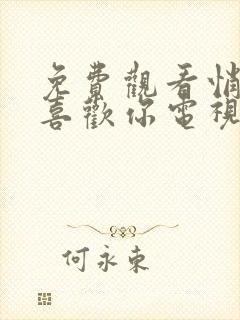 免費觀看悄
喜歡你電視
何永東